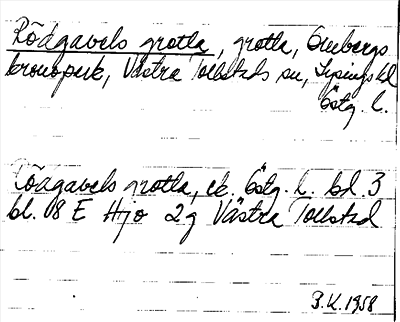 Rödgavels grotta, grotta, Ombergs
kronopark, Västra Tollstads sn, Lysings hd
Östg. l.
Rödgavels grotta, ek. Östg. l. bd. 3
bl. 08 E Hjo 2g Västra Tollstad
B.K. 1958